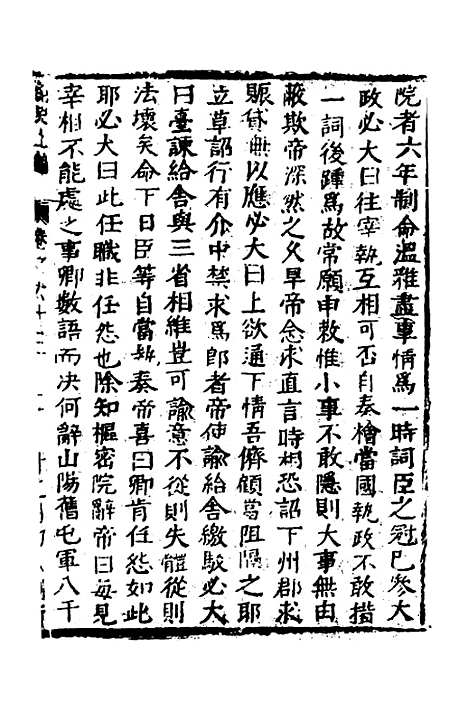 院者六年制命溫雅盡事情爲一時詞臣之冠已參大
政必大曰往宰執互相可否自秦檜當國執政不敢措
一詞後踵爲故常願申敕惟小事不敢隱則大事無由
蔽欺帝深然之久旱帝念求直言時相恐詔下州郡求
賑貸無以應必大曰上欲通下情吾儕顧當阻隔之耶
立草詔行有介中禁求爲郎者帝使諭給舍繳駁必大
曰臺諫給舍與三省相維豈可諭意不從則失體從則
法壞矣命下日臣等自當執奏帝喜曰卿肯任怨如此
耶必大曰此任職非任怨也除知樞密院辭帝曰每見
宰相不能處之事卿數語而决何辭山陽舊屯軍八千